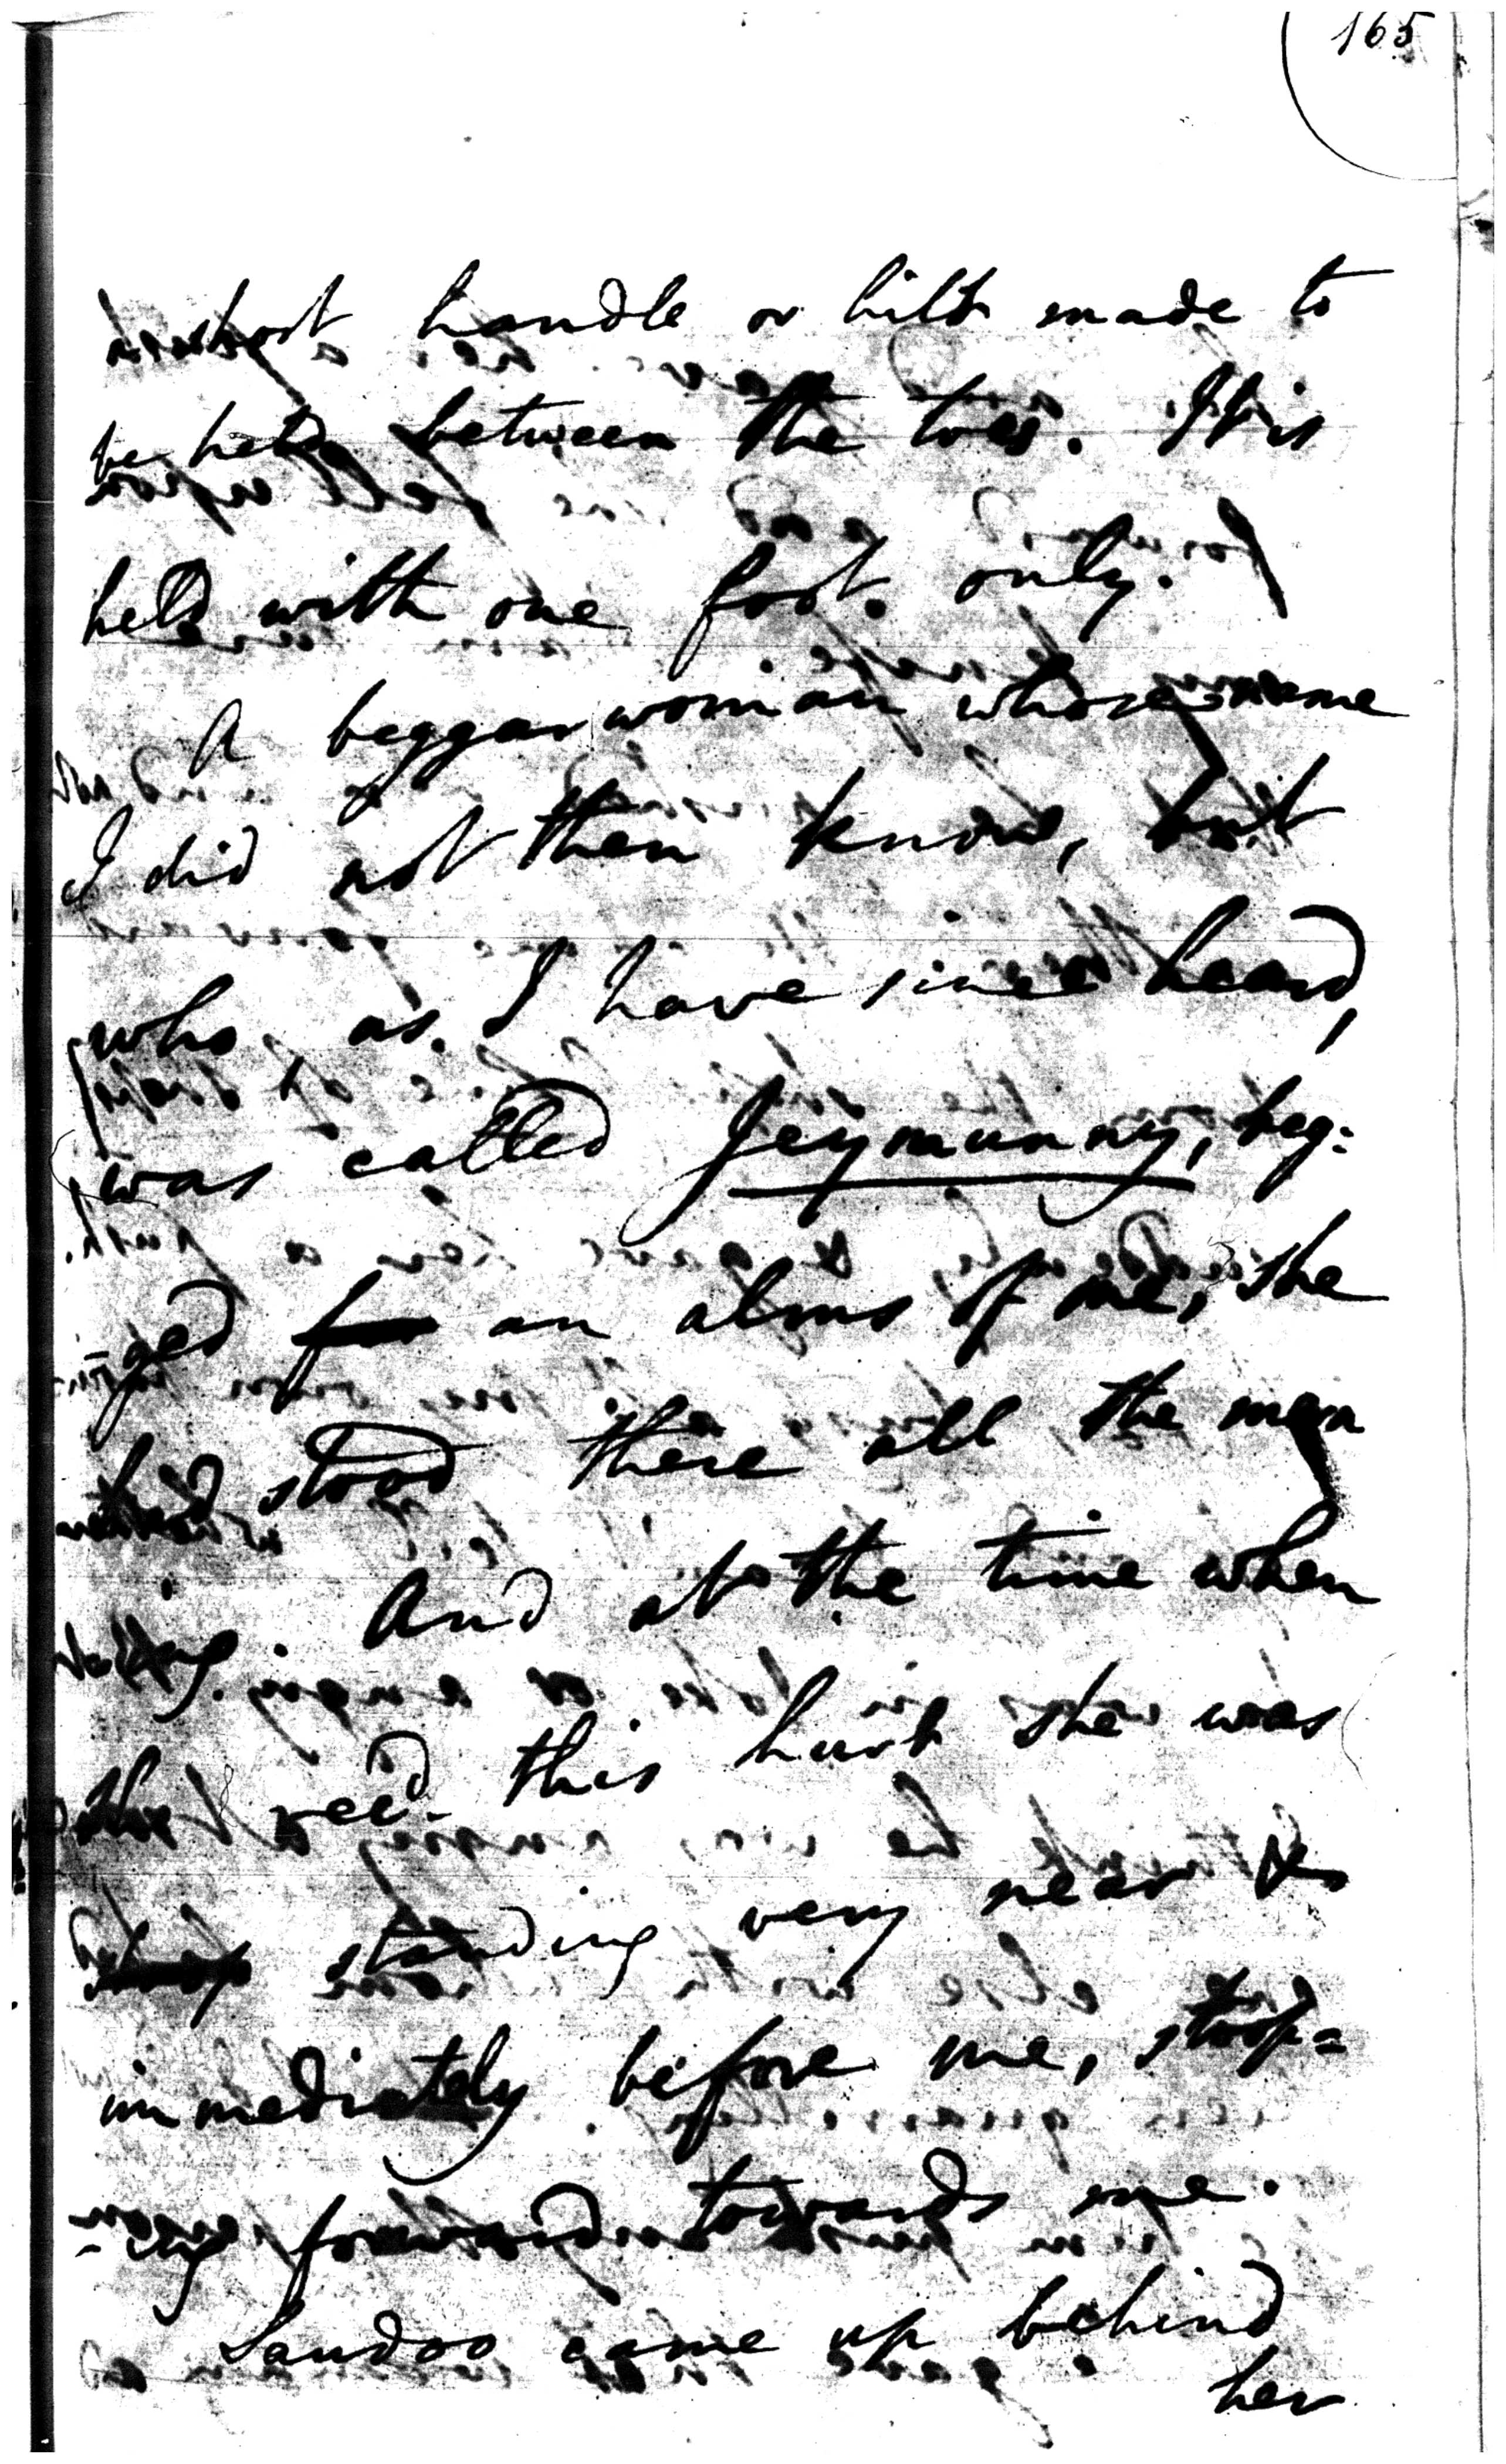 165
short handle or hilt made to
be held between the toes. It is
held with one foot. only.
A beggar woman whose name
I did not then know, but
who, as I have since heard,
was called Jeymunny, beg:
ged for an alms of me, she
stood there all the men
And at the time when
she recd. this hurt she was
standing very near &
immediately before me, stoop=
-ing forward towards me.
Sandoo came up behind
her